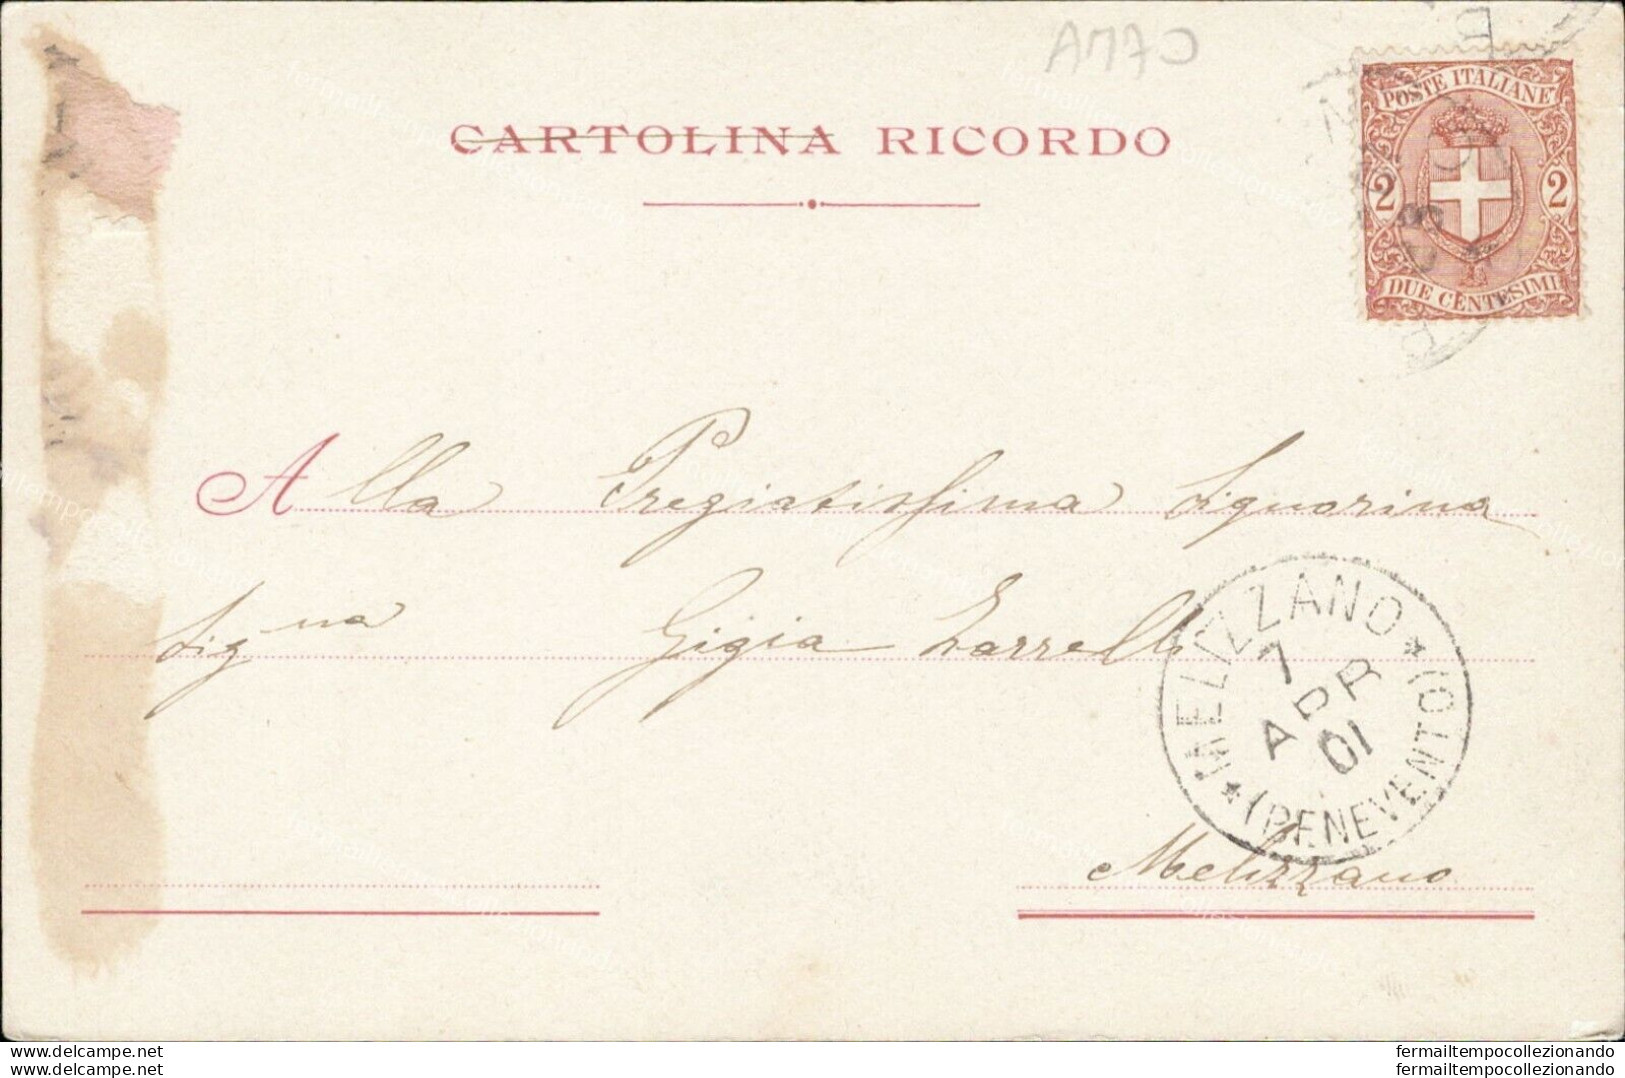 A1770
CARTOLINA RICORDO
POSTE ITALIANE
2 2
DUE CENTESIMI
Alla Pregiatissima Signorina
Sig.na Gigia Zarrelli
MELIZZANO
7 APR 01
(BENEVENTO)
Melizzano
www.delcampe.net
www.delcampe.net
fermailtempocollezionando
fermailtempocollezionando